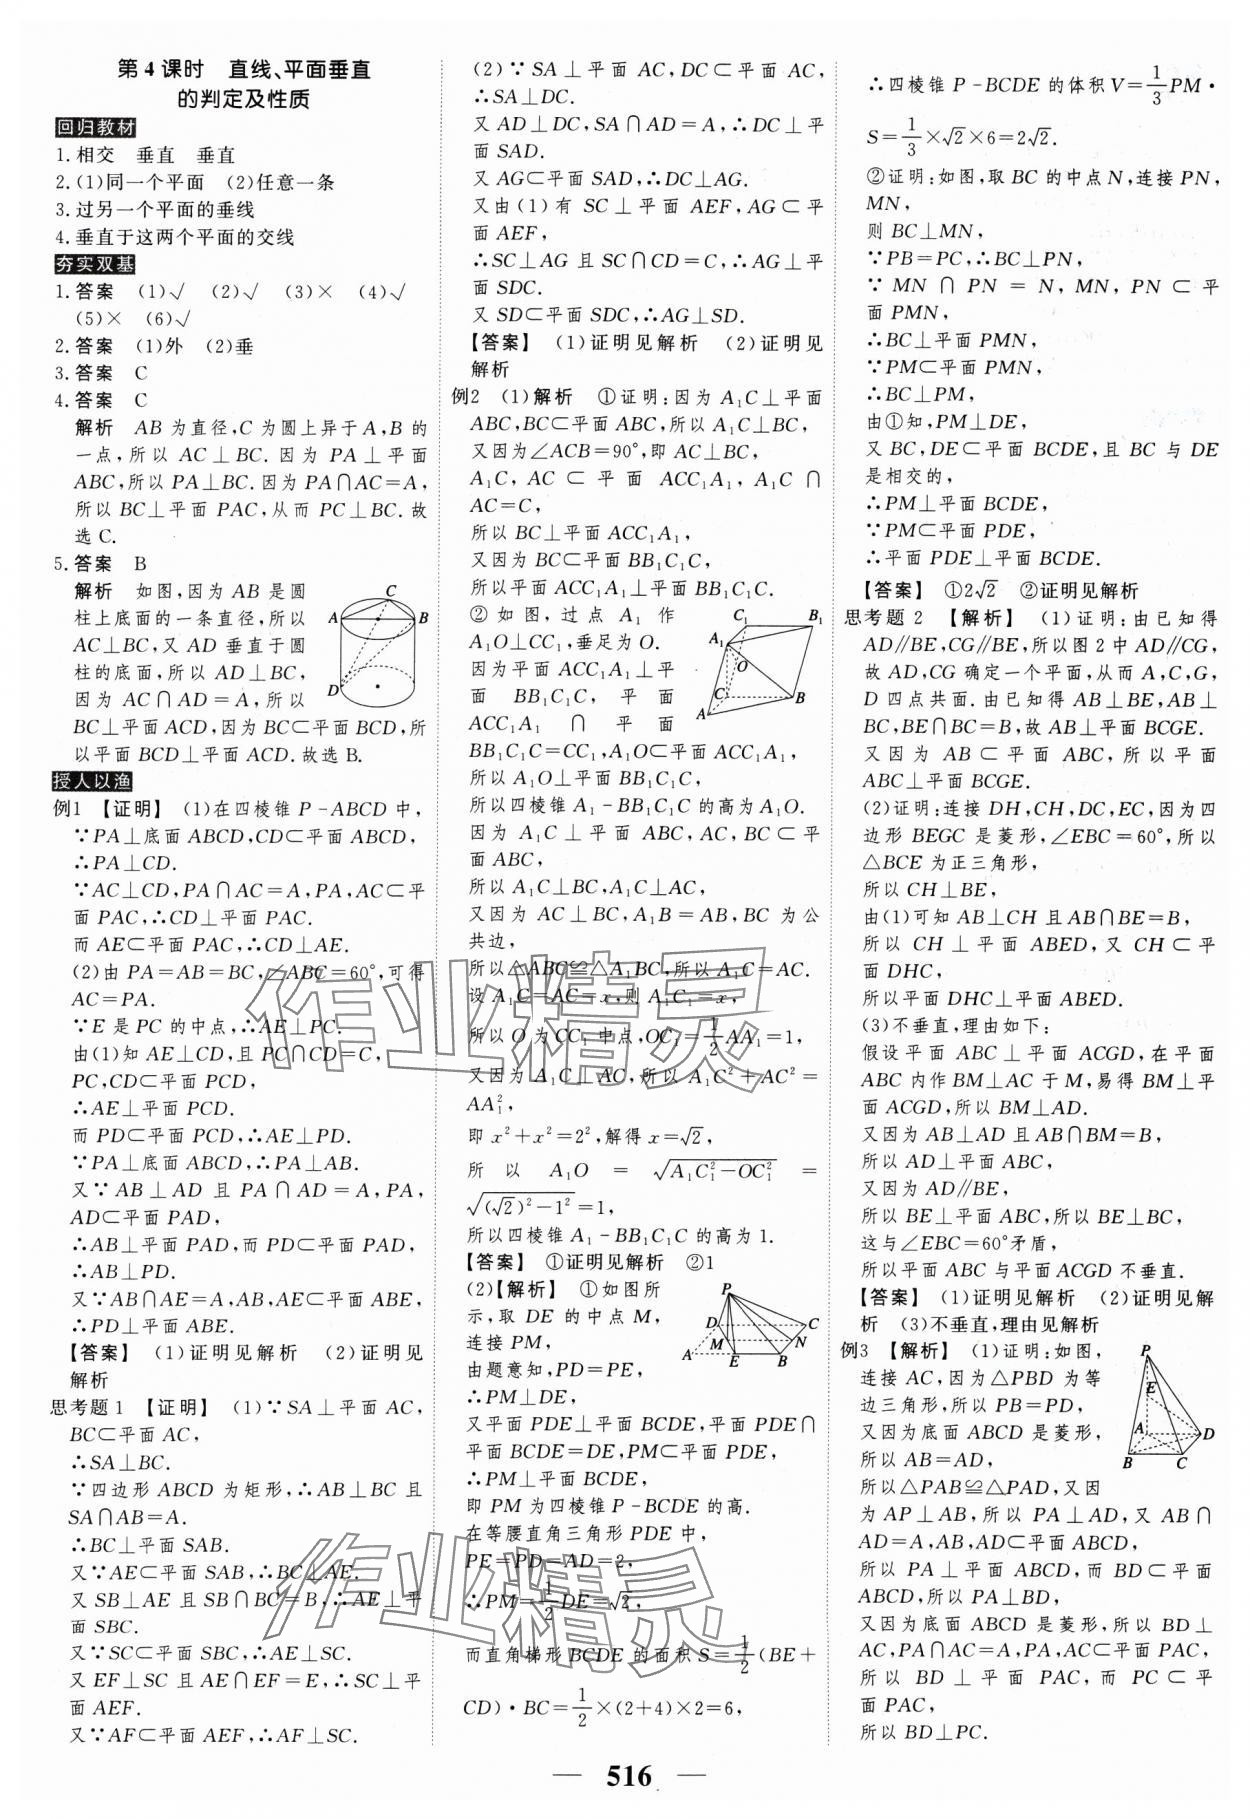 第4课时　直线、平面垂直
的判定及性质
回归教材
1.相交　垂直　垂直
2.(1)同一个平面　(2)任意一条
3.过另一个平面的垂线
4.垂直于这两个平面的交线
夯实双基
1.答案　(1)√　(2)√　(3)×　(4)√
(5)×　(6)√
2.答案　(1)外　(2)垂
3.答案　C
4.答案　C
解析　AB为直径,C为圆上异于A,B的
一点,所以AC⊥BC.因为PA⊥平面
ABC,所以PA⊥BC.因为PA∩AC=A,
所以BC⊥平面PAC,从而PC⊥BC.故
选C.
5.答案　B
解析　如图,因为AB是圆
柱上底面的一条直径,所以
AC⊥BC,又AD垂直于圆
柱的底面,所以AD⊥BC,
因为AC∩AD=A,所以
BC⊥平面ACD,因为BC⊂平面BCD,所
以平面BCD⊥平面ACD.故选B.
A B C D
授人以渔
例1　【证明】　(1)在四棱锥P-ABCD中,
∵PA⊥底面ABCD,CD⊂平面ABCD,
∴PA⊥CD.
∵AC⊥CD,PA∩AC=A,PA,AC⊂平
面PAC,∴CD⊥平面PAC.
而AE⊂平面PAC,∴CD⊥AE.
(2)由PA=AB=BC,∠ABC=60°,可得
AC=PA.
∵E是PC的中点,∴AE⊥PC.
由(1)知AE⊥CD,且PC∩CD=C,
PC,CD⊂平面PCD,
∴AE⊥平面PCD.
而PD⊂平面PCD,∴AE⊥PD.
∵PA⊥底面ABCD,∴PA⊥AB.
又∵AB⊥AD且PA∩AD=A,PA,
AD⊂平面PAD,
∴AB⊥平面PAD,而PD⊂平面PAD,
∴AB⊥PD.
又∵AB∩AE=A,AB,AE⊂平面ABE,
∴PD⊥平面ABE.
【答案】　(1)证明见解析　(2)证明见
解析
思考题1　【证明】　(1)∵SA⊥平面AC,
BC⊂平面AC,
∴SA⊥BC.
∵四边形ABCD为矩形,∴AB⊥BC且
SA∩AB=A.
∴BC⊥平面SAB.
又∵AE⊂平面SAB,∴BC⊥AE.
又SB⊥AE且SB∩BC=B,∴AE⊥平
面SBC.
又∵SC⊂平面SBC,∴AE⊥SC.
又EF⊥SC且AE∩EF=E,∴SC⊥平
面AEF.
又∵AF⊂平面AEF,∴AF⊥SC.
(2)∵SA⊥平面AC,DC⊂平面AC,
∴SA⊥DC.
又AD⊥DC,SA∩AD=A,∴DC⊥平
面SAD.
又AG⊂平面SAD,∴DC⊥AG.
又由(1)有SC⊥平面AEF,AG⊂平
面AEF,
∴SC⊥AG且SC∩CD=C,∴AG⊥平
面SDC.
又SD⊂平面SDC,∴AG⊥SD.
【答案】　(1)证明见解析　(2)证明见
解析
例2　(1)解析　①证明:因为A₁C⊥平面
ABC,BC⊂平面ABC,所以A₁C⊥BC,
又因为∠ACB=90°,即AC⊥BC,
A₁C,AC⊂平面ACC₁A₁,A₁C∩
AC=C,
所以BC⊥平面ACC₁A₁,
又因为BC⊂平面BB₁C₁C,
所以平面ACC₁A₁⊥平面BB₁C₁C.
②如图,过点A₁作
A₁O⊥CC₁,垂足为O.
因为平面ACC₁A₁⊥平
面BB₁C₁C,平面
ACC₁A₁∩平面
BB₁C₁C=CC₁,A₁O⊂平面ACC₁A₁,
C₁ B₁ A₁ O C B A
所以A₁O⊥平面BB₁C₁C,
所以四棱锥A₁-BB₁C₁C的高为A₁O.
因为A₁C⊥平面ABC,AC,BC⊂平
面ABC,
所以A₁C⊥BC,A₁C⊥AC,
又因为AC⊥BC,A₁B=AB,BC为公
共边,
所以△ABC≌△A₁BC,所以A₁C=AC.
设A₁C=AC=x,则A₁C₁=x,
所以O为CC₁中点,OC₁=1/2AA₁=1,
又因为A₁C⊥AC,所以A₁C²+AC²=
AA₁²,
即x²+x²=2²,解得x=√2,
所以A₁O=√(A₁C₁²-OC₁²)=
√((√2)²-1²)=1,
所以四棱锥A₁-BB₁C₁C的高为1.
【答案】　①证明见解析　②1
(2)【解析】　①如图所
示,取DE的中点M,
连接PM,
由题意知,PD=PE,
∴PM⊥DE,
P D C M N A E B
又平面PDE⊥平面BCDE,平面PDE∩
平面BCDE=DE,PM⊂平面PDE,
∴PM⊥平面BCDE,
即PM为四棱锥P-BCDE的高.
在等腰直角三角形PDE中,
PE=PD=AD=2,
∴PM=1/2DE=√2,
而直角梯形BCDE的面积S=1/2(BE+
CD)·BC=1/2×(2+4)×2=6,
∴四棱锥P-BCDE的体积V=1/3PM·
S=1/3×√2×6=2√2.
②证明:如图,取BC的中点N,连接PN,
MN,
则BC⊥MN,
∵PB=PC,∴BC⊥PN,
∵MN∩PN=N,MN,PN⊂平
面PMN,
∴BC⊥平面PMN,
∵PM⊂平面PMN,
∴BC⊥PM,
由①知,PM⊥DE,
又BC,DE⊂平面BCDE,且BC与DE
是相交的,
∴PM⊥平面BCDE,
∵PM⊂平面PDE,
∴平面PDE⊥平面BCDE.
【答案】　①2√2　②证明见解析
思考题2　【解析】　(1)证明:由已知得
AD∥BE,CG∥BE,所以图2中AD∥CG,
故AD,CG确定一个平面,从而A,C,G,
D四点共面.由已知得AB⊥BE,AB⊥
BC,BE∩BC=B,故AB⊥平面BCGE.
又因为AB⊂平面ABC,所以平面
ABC⊥平面BCGE.
(2)证明:连接DH,CH,DC,EC,因为四
边形BEGC是菱形,∠EBC=60°,所以
△BCE为正三角形,
所以CH⊥BE,
由(1)可知AB⊥CH且AB∩BE=B,
所以CH⊥平面ABED,又CH⊂平
面DHC,
所以平面DHC⊥平面ABED.
(3)不垂直,理由如下:
假设平面ABC⊥平面ACGD,在平面
ABC内作BM⊥AC于M,易得BM⊥平
面ACGD,所以BM⊥AD.
又因为AB⊥AD且AB∩BM=B,
所以AD⊥平面ABC,
又因为AD∥BE,
所以BE⊥平面ABC,所以BE⊥BC,
这与∠EBC=60°矛盾,
所以平面ABC与平面ACGD不垂直.
【答案】　(1)证明见解析　(2)证明见解
析　(3)不垂直,理由见解析
例3　【解析】　(1)证明:如图,
连接AC,因为△PBD为等
边三角形,所以PB=PD,
又因为底面ABCD是菱形,
所以AB=AD,
所以△PAB≌△PAD,又因
P E A D B C
为AP⊥AB,所以PA⊥AD,又AB∩
AD=A,AB,AD⊂平面ABCD,
所以PA⊥平面ABCD,而BD⊂平面
ABCD,所以PA⊥BD,
又因为底面ABCD是菱形,所以BD⊥
AC,PA∩AC=A,PA,AC⊂平面PAC,
所以BD⊥平面PAC,而PC⊂平
面PAC,
所以BD⊥PC.
作业精灵
作业精灵
— 516 —